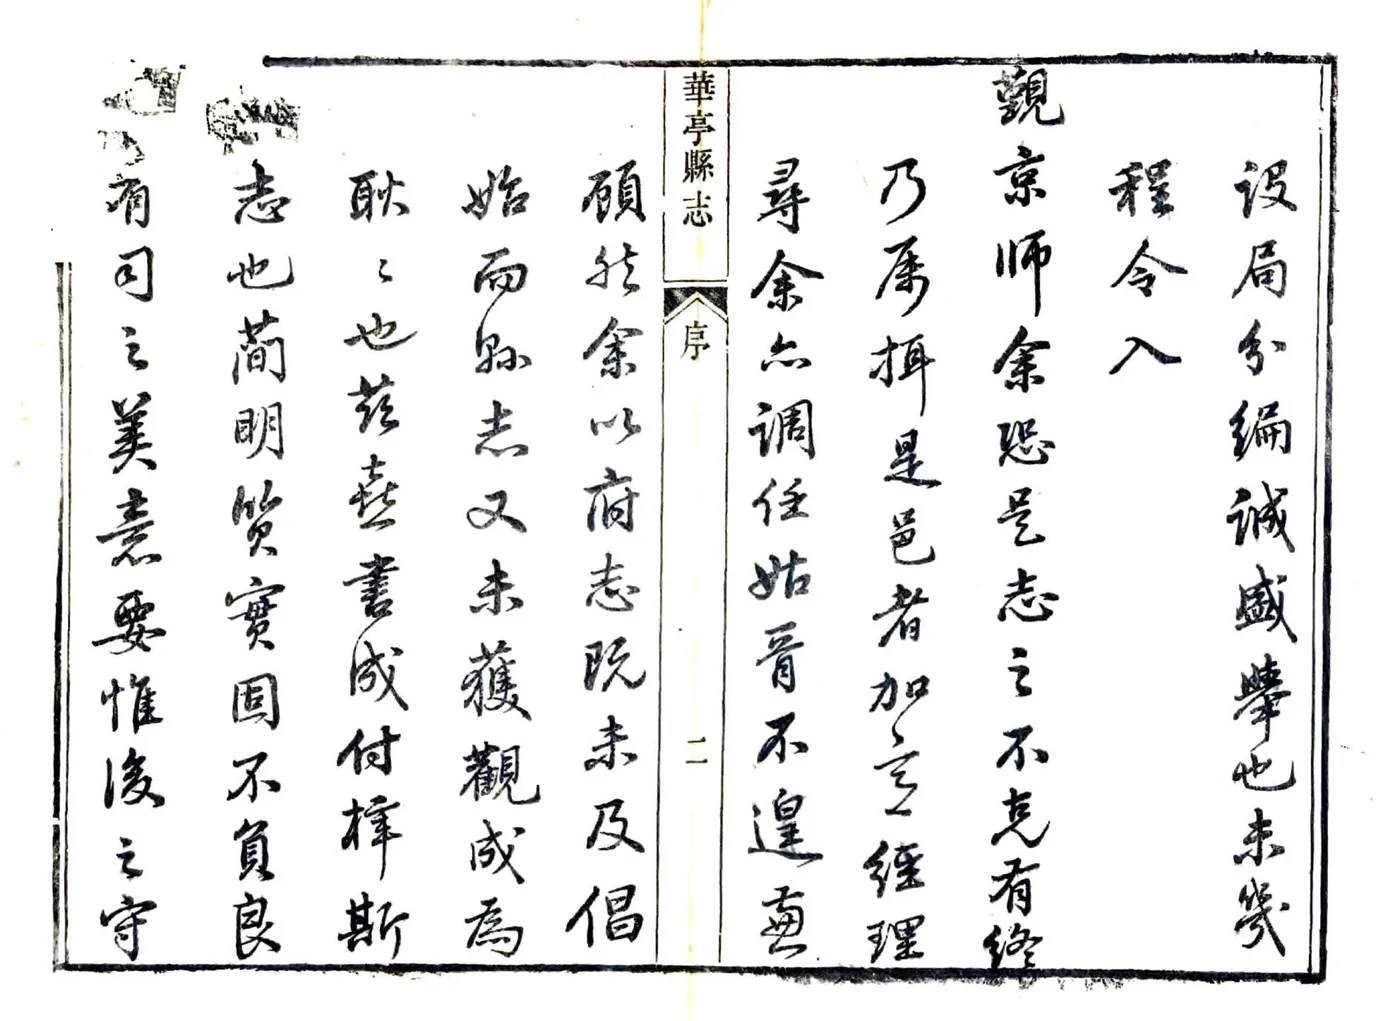 設局分編誠盛舉也未幾
程令入
覲京師余恐是志之不克有終
乃属攝是邑者加意經理
尋余亦調任姑胥不遑兼
華亭縣志 序 二
顧然余以府志既未及倡
始而縣志又未獲觀成為
耿〻也茲喜書成付梓斯
志也蕳明質實固不負良
有司之美意要惟後之守